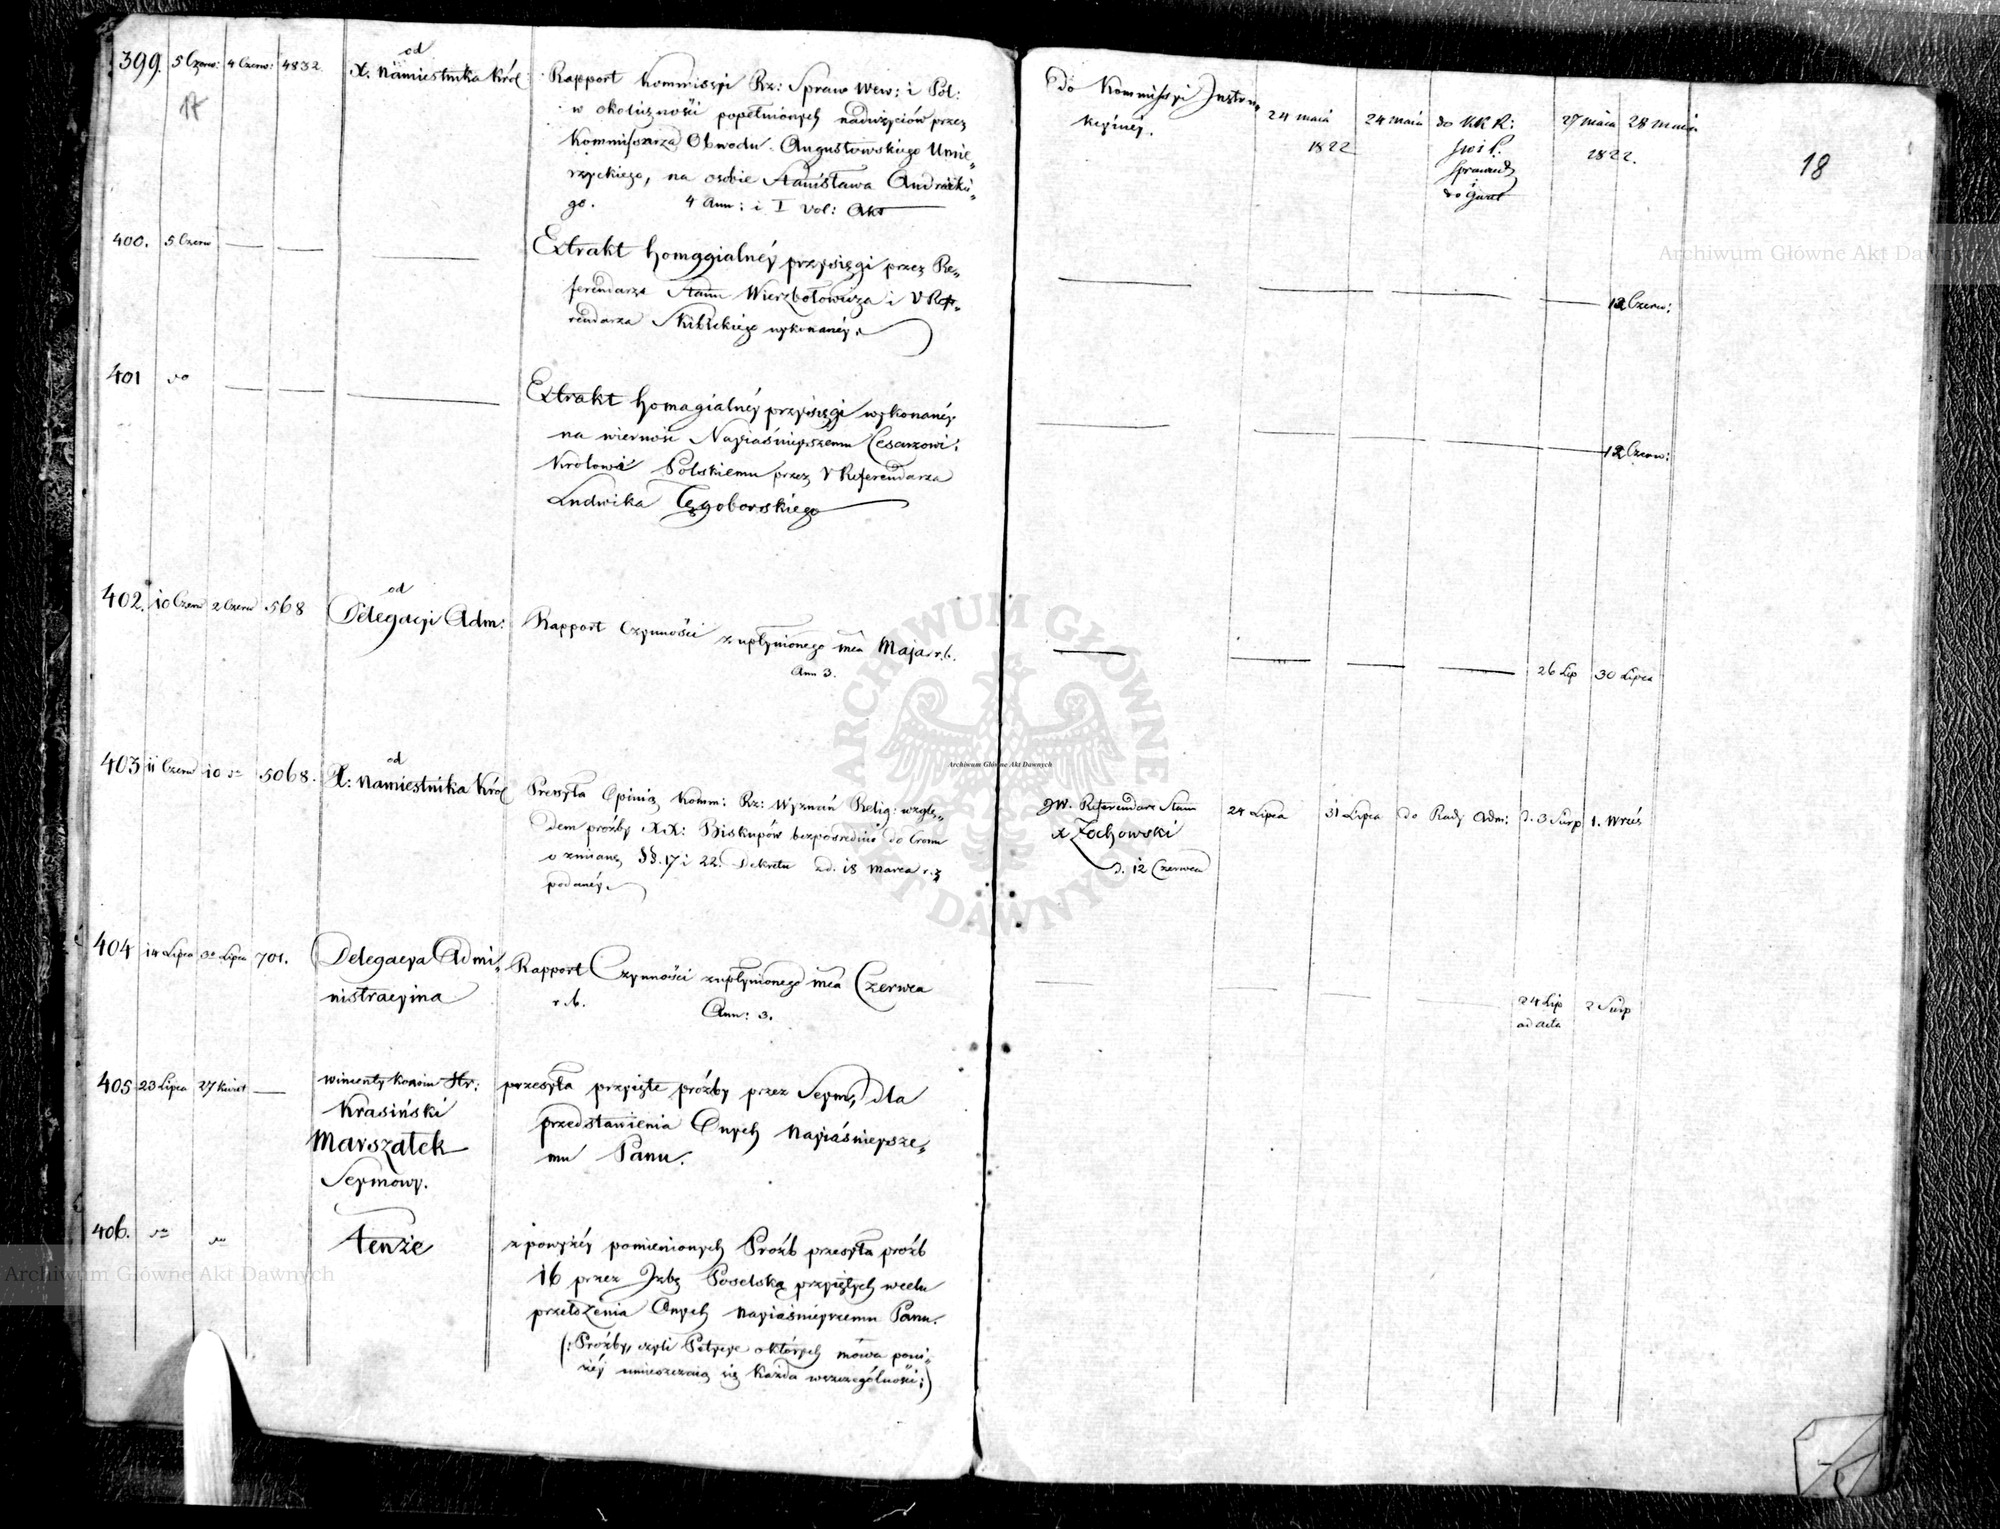 399. 5 Czerw: 4 Czerw: 4832. od
X. Namiestnika Król
Rapport Kommissyi Rz: Spraw Wew: i Pol:
w okoliczności popełnionych nadużyciów przez
Kommissarza Obwodu Augustowskiego
na osobie Stanisława
go. 4 Ann: i I Vol: Akt
Do Kommissyi Instru-
kcyinéy.
24 maia
1822
24 maia
do KKR:
27 maia 28 maia
1822.
18
400. 5 Czerw
Extrakt homagialnéy przysięgi przez Re-
ferendarza Stanu Wierzbołowicza i V Ref-
rendarza Skibickiego wykonanéy.
12 Czerw:
401 do
Extrakt homagialnéy przysięgi wykonanéy
na wierność Nayiaśnieyszemu Cesarzowi
Królowi Polskiemu przez V Referendarza
Ludwika Tęgoborskiego
12 Czerw:
402. 10 Czerw 2 Czerw 568 od
Delegacyi Adm:
Rapport Czynności z upłynionego mca Maja r.b.
Ann 3.
26 Lip 30 Lipca
403 11 Czerw 10 do 5068. od
X: Namiestnika Król
Przesyła Opinią Komm: Rz: Wyznań Relig: wzglę-
dem prośby XX: Biskupów bezpośrednio do Tronu
o zmianę §§. 17 i 22. Dekretu z d. 18 Marca r.z
podanéy.
JW. Referendarz Stanu
X Zochowski
d. 12 Czerwca
24 Lipca 31 Lipca do Rady Adm: d. 3 Sierp 1. Wrześ
404 14 Lipca 30 Lipca 701.
Delegacya Admi-
nistracyina
Rapport Czynności z upłynionego mca Czerwca
r.b. Ann: 3.
24 Lip
ad acta
2 Sierp
405 23 Lipca 27 Kwiet
Wincenty Korwin Hr:
Krasiński
Marszałek
Seymowy.
przesyła przyięte prośby przez Seym, dla
przedstawienia Onych Nayiaśnieysze-
mu Panu.
406. do do
Tenże
z powyżéy pomienionych Próśb przesyła próśb
16 przez Izbę Poselską przyiętych wcelu
przełożenia Onych Nayiaśnieyszemu Panu.
(: Prośby, czyli Petycye o których mowa poni-
żéy umieszczaią się każda wszczególności :)
Archiwum Główne Akt Dawnych
Archiwum Główne Akt Dawnych
Archiwum Główne Akt Dawnych
ARCHIWUM GŁÓWNE AKT DAWNYCH